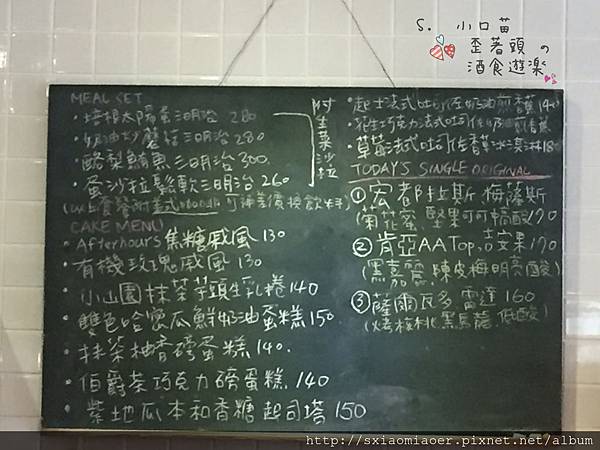 S. 小口苗
歪著頭の
酒食遊樂
MEAL SET
·培根太陽蛋三明治 280
·奶油炒蘑菇三明治 280
·酪梨鮪魚三明治 300.
·蛋沙拉鬆軟三明治 260
附生菜沙拉
(以上套餐附美式 可補差價換飲料)
CAKE MENU
·Afterhours焦糖戚風 130
·有機玫瑰戚風 130
·小山園抹茶芋頭生乳捲 140
·雙色哈密瓜鮮奶油蛋糕 150
·抹茶柚香磅蛋糕 140.
·伯爵茶巧克力磅蛋糕 140
·紫地瓜本和香糖起司塔 150
·起士法式吐司佐奶油煎香蕉 140
·花生巧克力法式吐司佐奶油煎香蕉
·草莓法式吐司佐香草冰淇淋 180
TODAY'S SINGLE ORIGINAL
①宏都拉斯.梅藩斯
(菊花蜜、堅果可可稠酸 170
②肯亞AA Top.吉安果 170
(黑嘉麗.陳皮梅明亮酸)
③薩爾瓦多.雷達 160
(烤核桃.黑烏龍.低酸)
http://sxiaomiaoer.pixnet.net/album